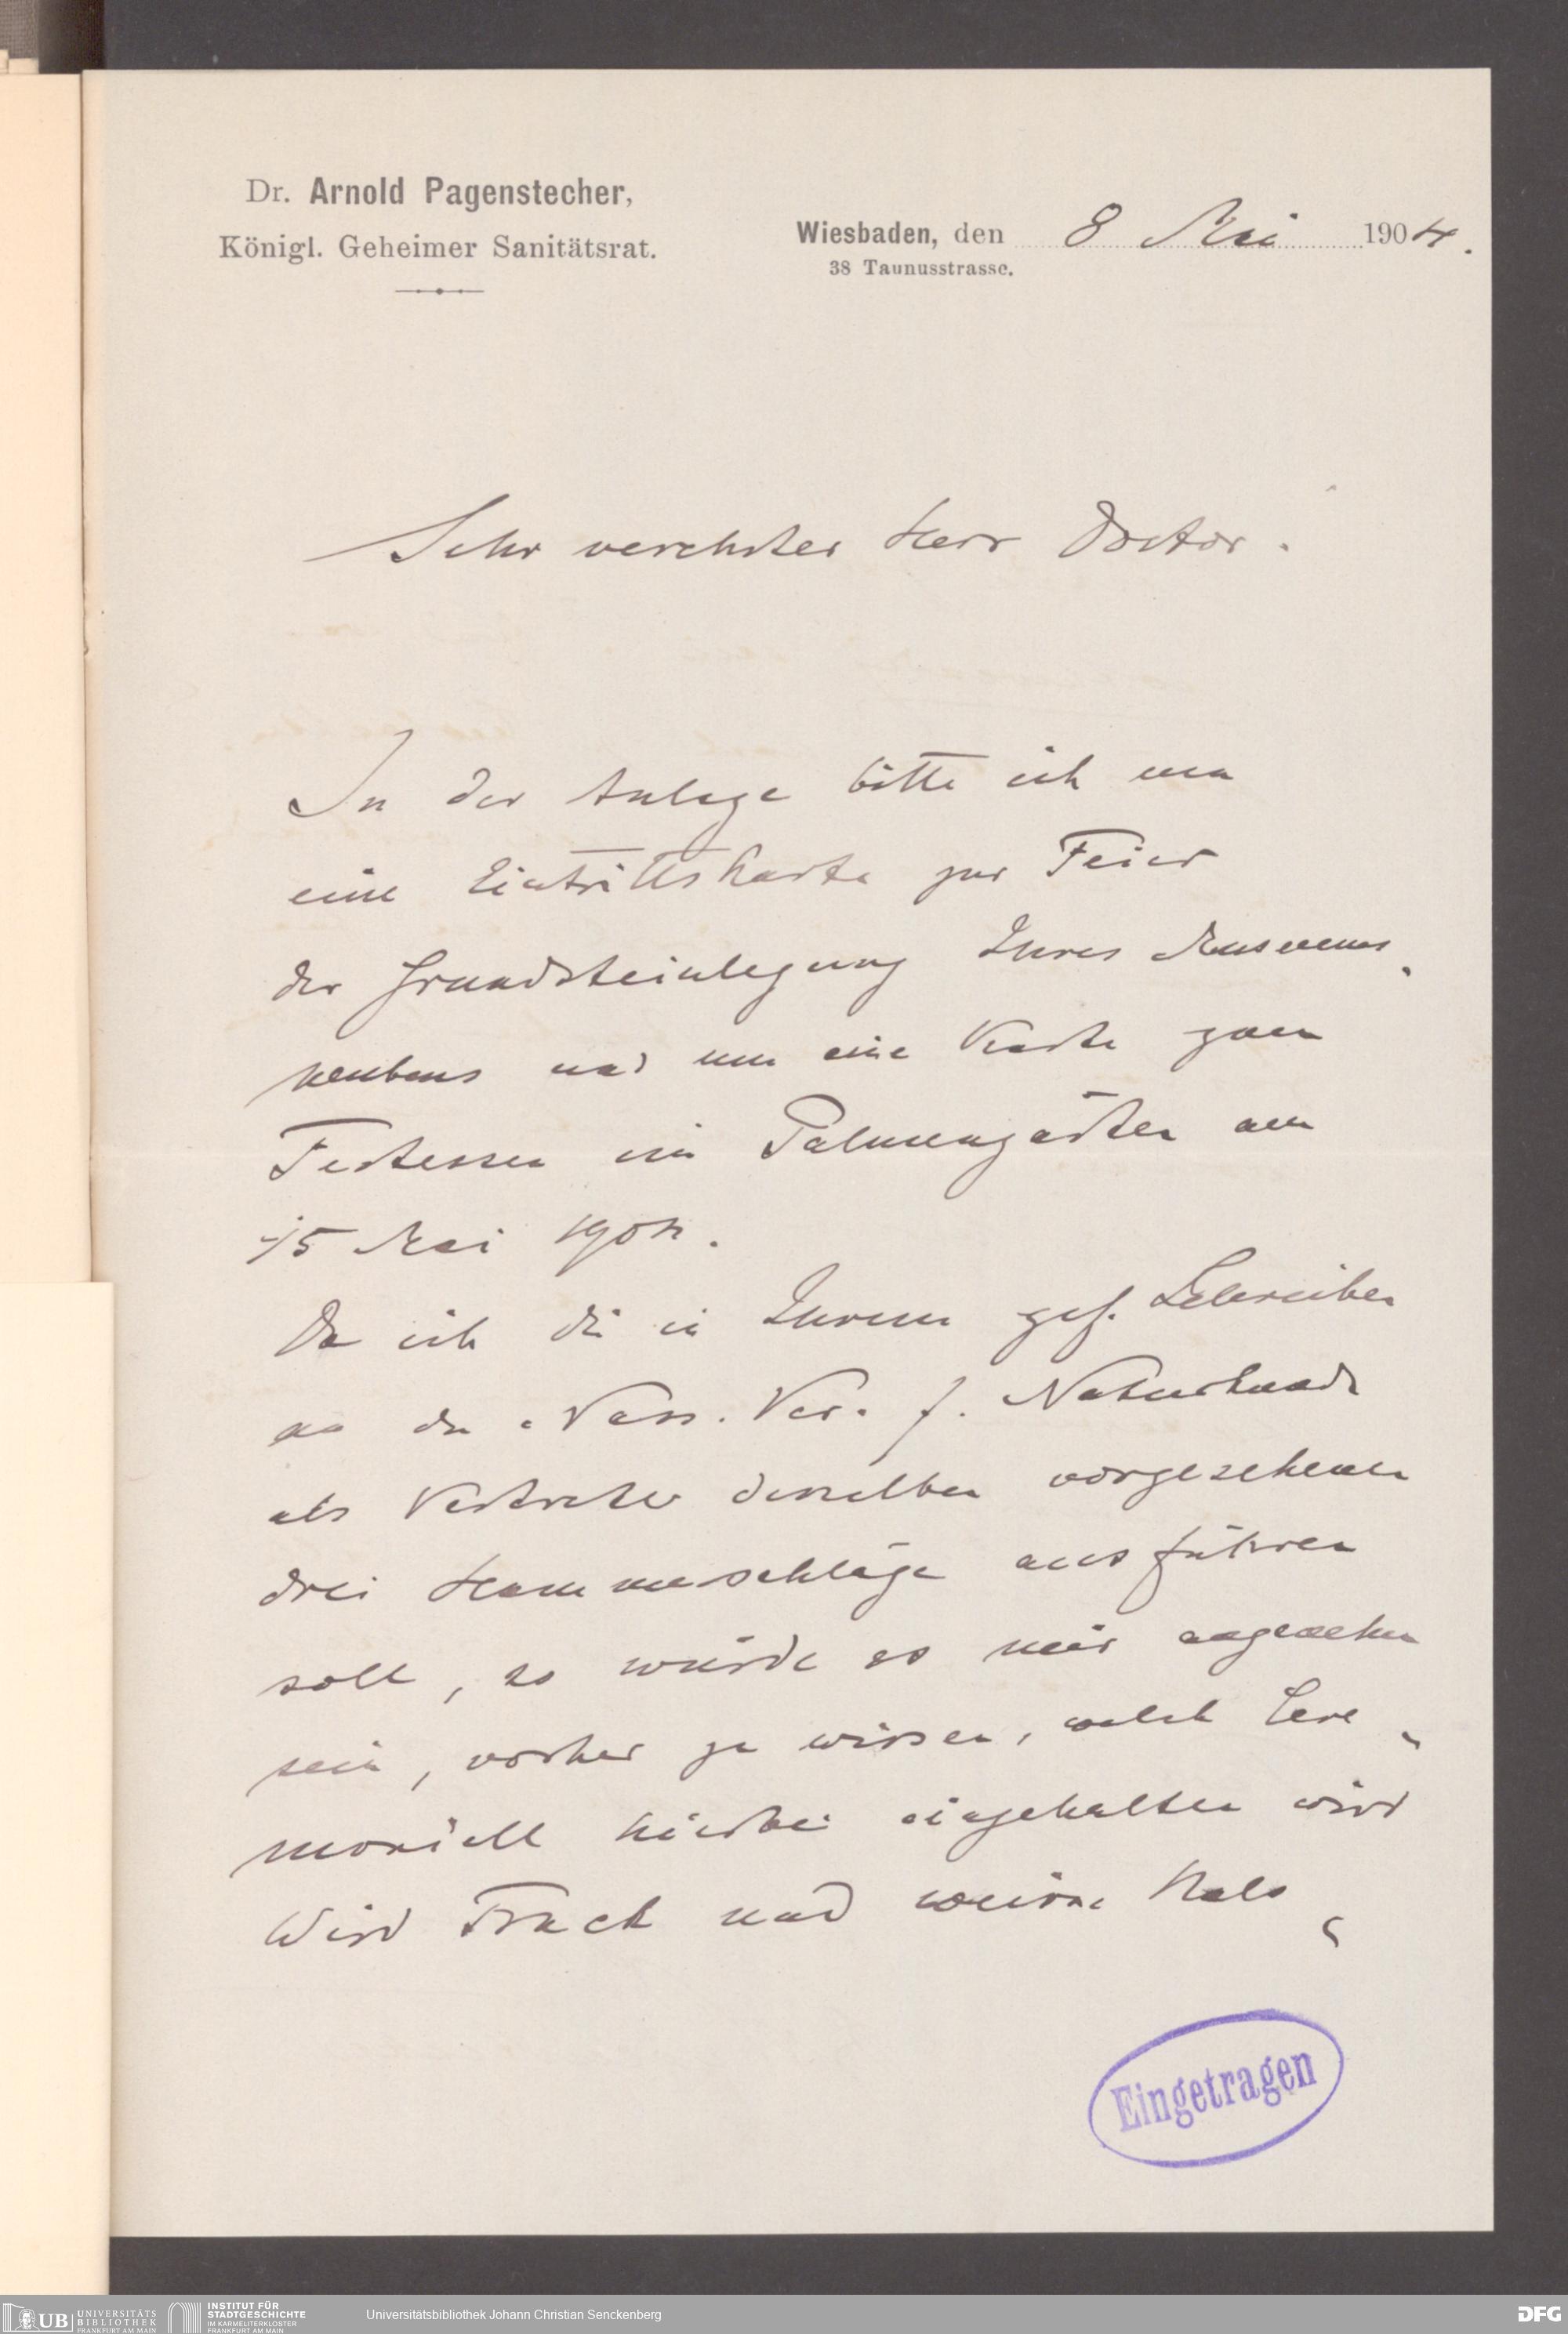 Dr. Arnold Pagenstecher,
Königl. Geheimer Sanitätsrat.
Wiesbaden, den 8 Mai 1904.
38 Taunusstrasse.
Sehr verehrter Herr Doctor.
In der Anlage bitte ich um
eine Eintrittskarte zur Feier
der Grundsteinlegung Ihres Museums-
neubaus und um eine Karte zum
Festessen im Palmengarten am
15 Mai 1904.
Da ich die in Ihrem gef. Schreiben
an den Nass. Ver. f. Naturkunde
als Vertreter desselben vorgesehenen
drei Hammerschläge ausführen
soll, so würde es mir angenehm
sein, vorher zu wissen, welch Cere-
moniell hierbei eingehalten wird
Wird Frack und weisse Hals-
Eingetragen
UB UNIVERSITÄTS
BIBLIOTHEK
FRANKFURT AM MAIN
INSTITUT FÜR
STADTGESCHICHTE
IM KARMELITERKLOSTER
FRANKFURT AM MAIN
Universitätsbibliothek Johann Christian Senckenberg
DFG